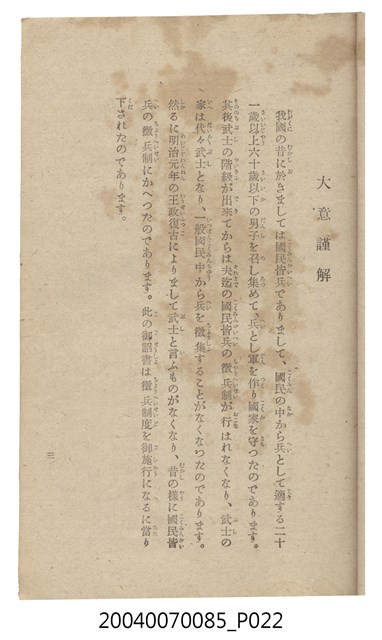 大意謹解
我國の昔に於きましては國民皆兵でありまして、國民の中から兵として適する二十
一歲以上六十歲以下の男子を召し集めて、兵とし軍を作り國家を守つたのであります。
其後武士の階級が出來てからは夫迄の國民皆兵の徵兵制が行はれなくなり、武士の
家は代々武士となり、一般國民中から兵を徵集することがなくなつたのであります。
然るに明治元年の王政復古によりまして武士と言ふものがなくなり、昔の樣に國民皆
兵の徵兵制にかへつたのであります。此の御詔書は徵兵制度を御施行になるに當り
下されたのであります。
三
20040070085_P022